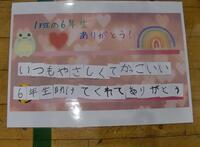 1年生の6年生
ありがとう!
いつもやさしくてかっこいい
6年生助けてくれてありがとう